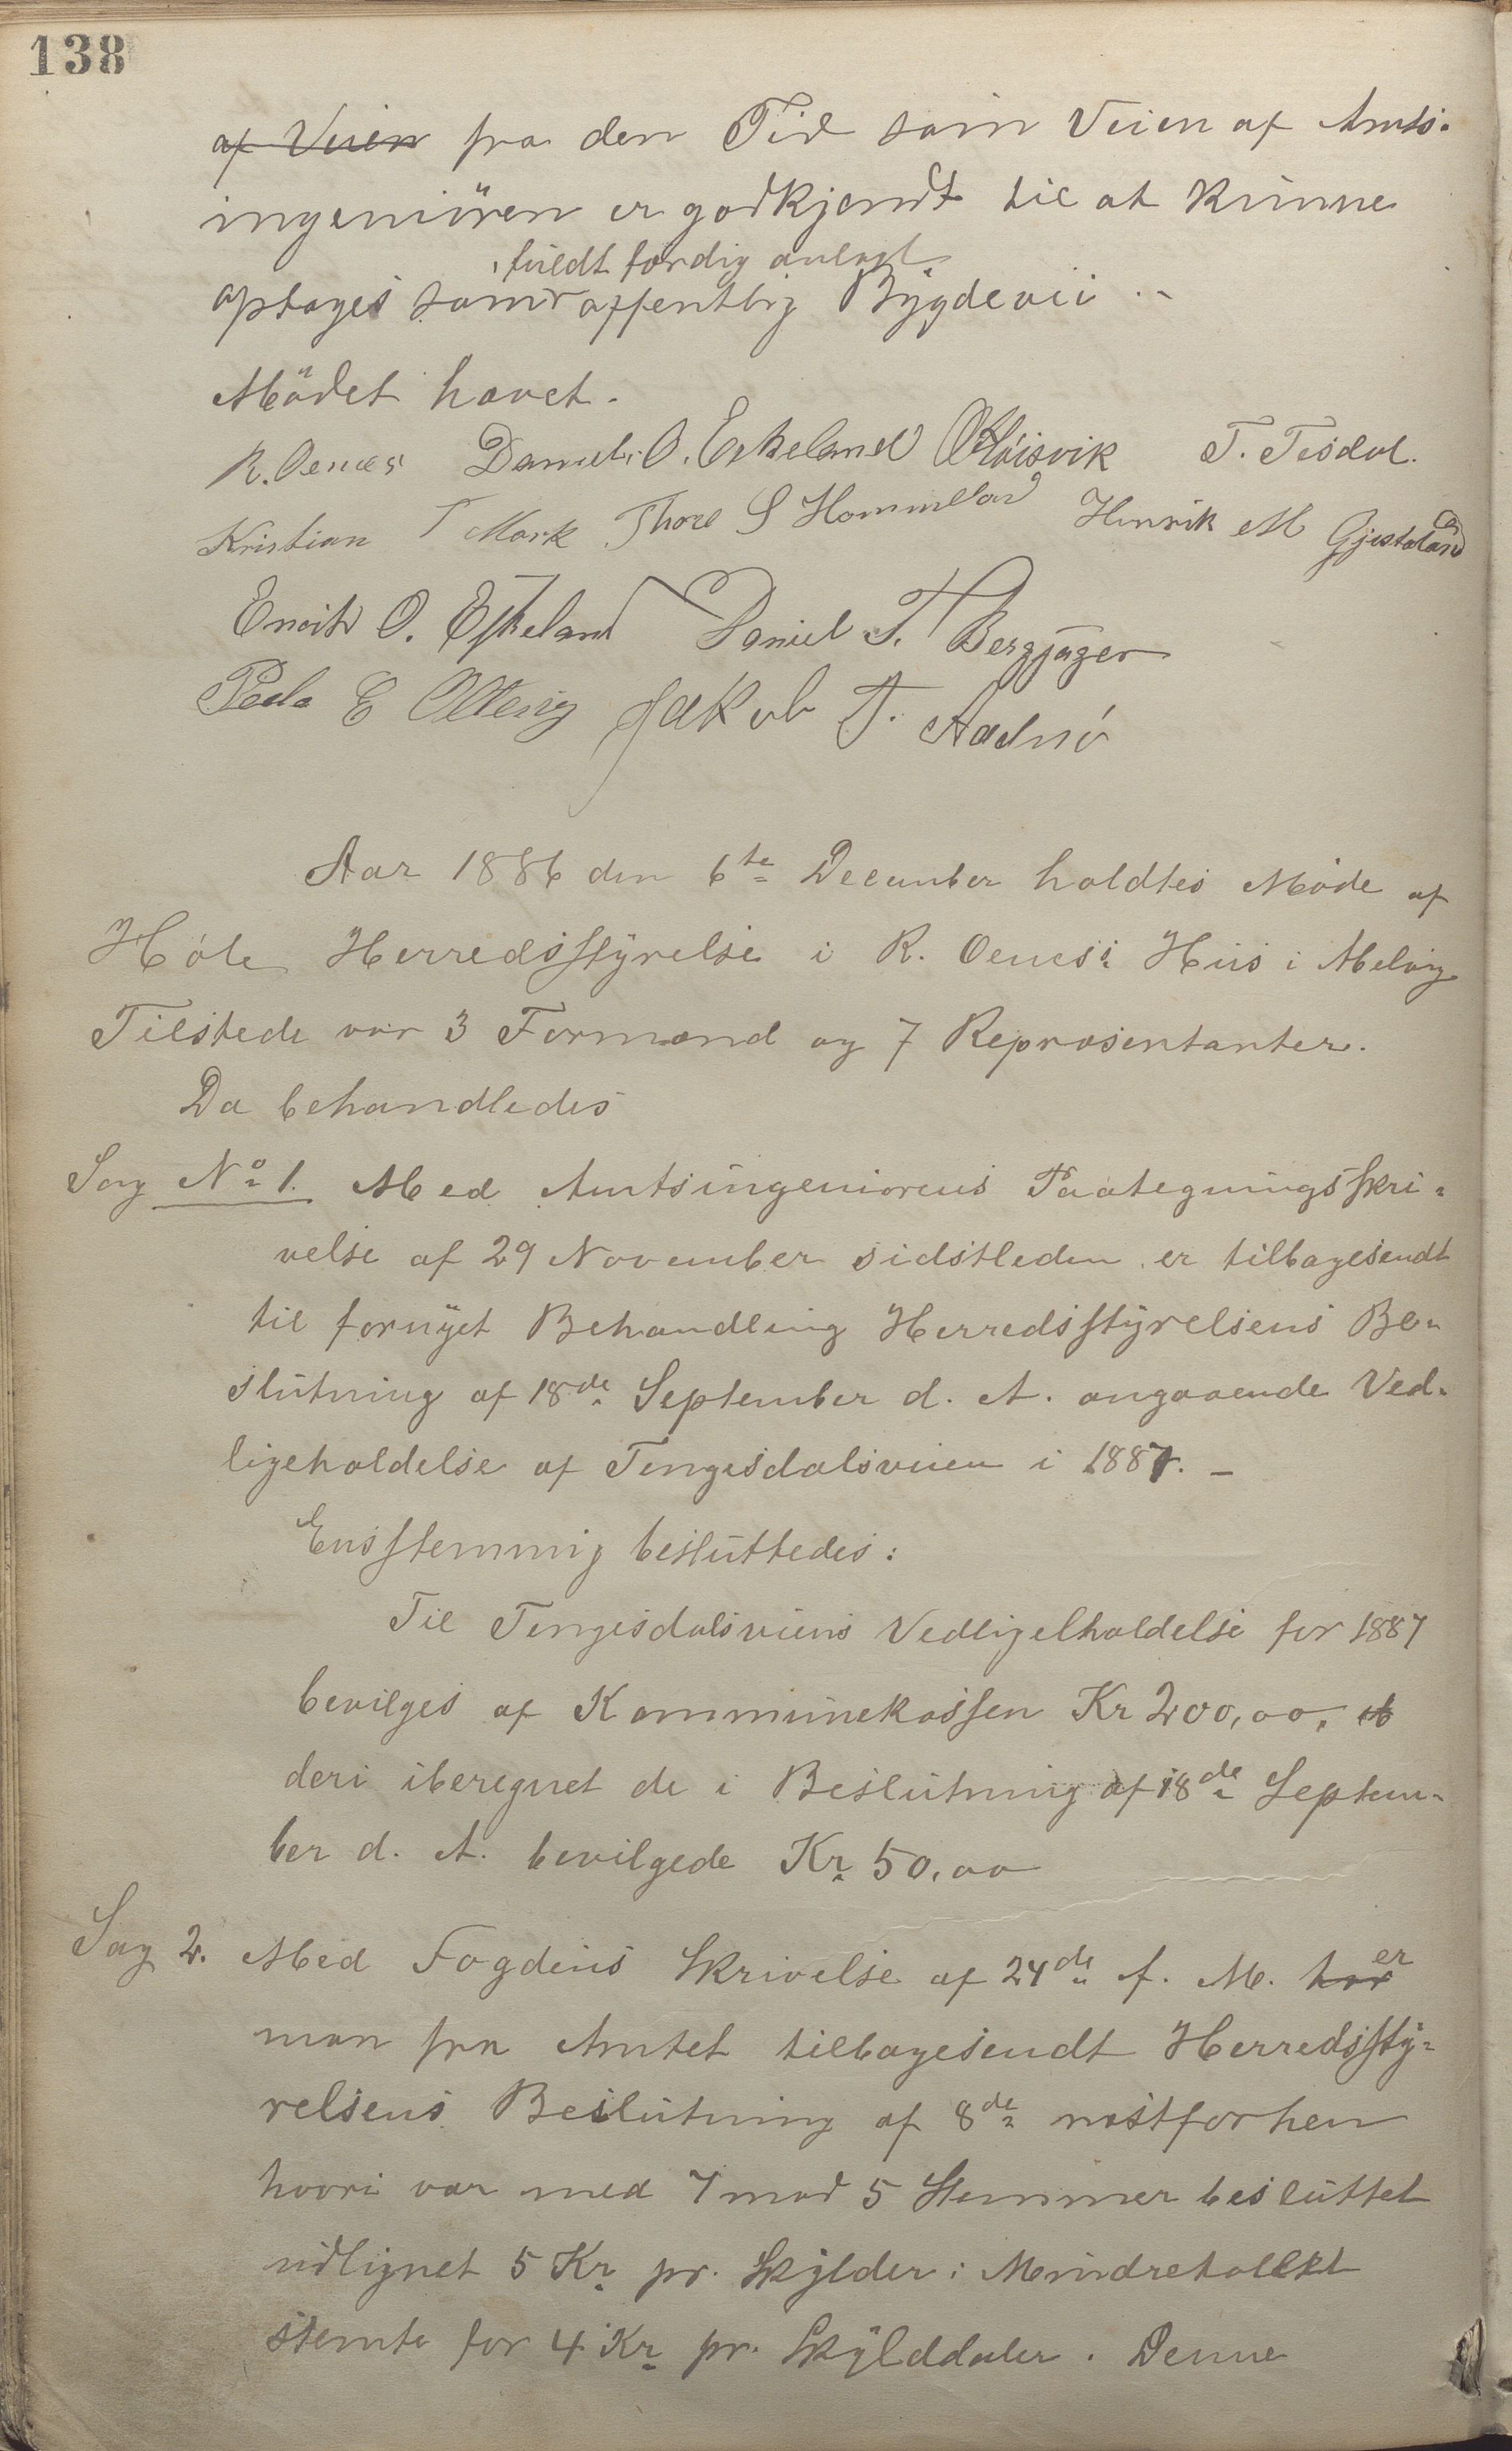 138
af Veien fra den Tid som Veien af Amts-
ingeniören er godkjendt til at kunne
fuldt færdig anlagt
optages som offentlig Bygdevei .-
Mödet hævet.
R. Oenæs Daniel O. Eskeland O Höisvik T. Tesdal.
Kristian T Mark Thore S Hommeland Henrik M Gjestaland
Enok O. Eskeland Daniel T. Bergjager
Peder E Olteig Jakob T. Aadnö
Aar 1886 den 6te December holdtes Möde af
Höle Herredsstyrelse i R. Oenes's Huus i Melvig
Tilstede var 3 Formænd og 7 Repræsentanter.
Da behandledes
Sag No 1. Med Amtsingeniörens Paategningsskri-
velse af 29 November sidstleden er tilbagesendt
til fornyet Behandling Herredsstyrelsens Be-
slutning af 18de September d. A. angaaende Ved-
ligeholdelse af Tengesdalsveien i 1887. -
Ensstemmig besluttedes:
Til Tengesdalsveiens Vedligeholdelse for 1887
bevilges af Kommunekassen Kr 200,00,
deri iberegnet de i Beslutning af 18de Septem-
ber d. A. bevilgede Kr. 50,00
Sag 2. Med Fogdens Skrivelse af 24de f. M. har er
man fra Amtet tilbagesendt Herredssty-
relsens Beslutning af 8de næstforhen
hvori var med 7 mod 5 Stemmer besluttet
udlignet 5 Kr. pr. Skylder: Mindretallet
stemte for 4 Kr. pr. Skylddaler. Denne